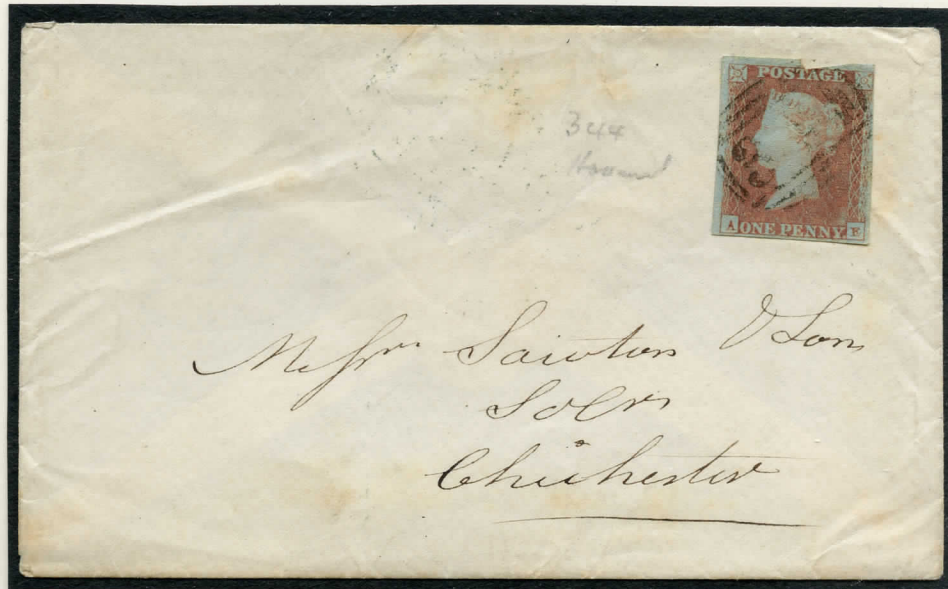 POSTAGE
A ONE PENNY E
344
Messrs Sowton & Son
Solrs
Chichester